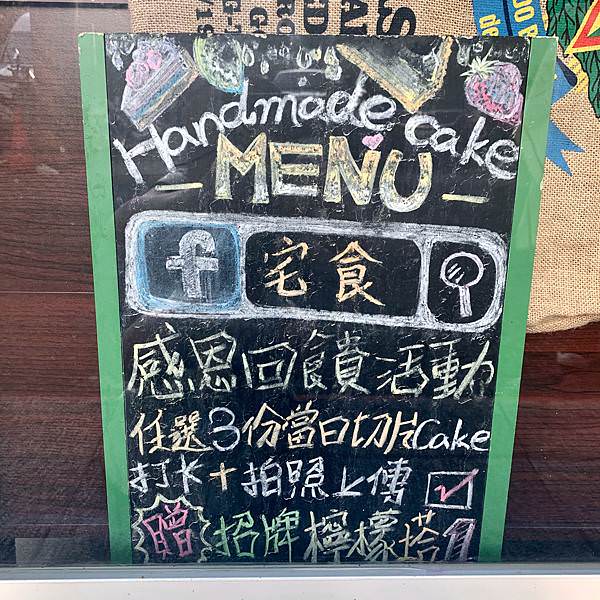 Handmade Cake
MENU
f 宅食
感恩回饋活動
任選3份當日切片Cake
打卡+拍照上傳
贈招牌檸檬塔1